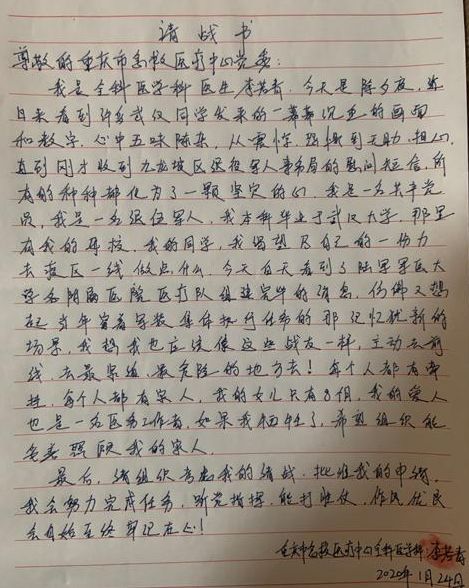 请战书
尊敬的重庆市急救医疗中心党委：
我是全科医学科医生,李若奇。今天是除夕夜,连
日来看到许多武汉同学发来的一幕幕沉重的画面
和数字,心中五味陈杂,从震惊、恐惧到无助、担心,
直到刚才收到九龙坡区退役军人事务局的慰问短信,所
有的种种都化为了一颗坚定的心。我是一名共产党
员,我是一名退伍军人,我本科毕业于武汉大学,那里
有我的母校,我的同学,我渴望尽自己的一份力
去疫区一线做点什么。今天白天看到了陆军军医大
学各附属医院医疗队组建完毕的消息,仿佛又想
起当年穿着军装集体执行任务的那记忆犹新的
场景,我想我也应该像这些战友一样,主动去前
线,去最紧迫、最危险的地方去！每个人都有
每个人都有家人,我的女儿只有8个月,我的爱人
也是一名医务工作者,如果我牺牲了,希望组织能
照顾我的家人。
最后,请组织考虑我的请战,批准我的申请,
我会努力完成任务,听党指挥,能打胜仗,作风优良
会自始至终牢记在心！
重庆市急救医疗中心全科医学科:李若奇
2020年1月24日